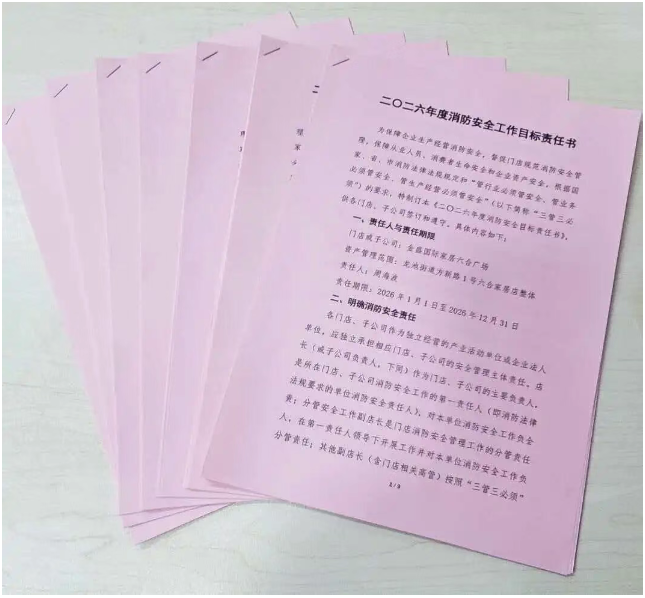 二〇二六年度消防安全工作目标责任书
为保障企业生产经营消防安全，督促门店规范消防安全管
理，保障从业人员、消费者生命安全和企业资产安全，根据国
家、省、市消防法律法规规定和“管行业必须管安全、管业务
必须管安全、管生产经营必须管安全”（以下简称“三管三必
须”）的要求，特制订本《二〇二六年度消防安全目标责任书》，
供各门店、子公司签订和遵守，具体内容如下：
一、责任人与责任期限
门店或子公司：金盛国际家居六合广场
资产管理范围：龙池街道方新路1号六合家居店整体
责任人：周海波
责任期限：2026年1月1日至2026年12月31日
二、明确消防安全责任
各门店、子公司作为独立经营的产业活动单位或企业法人
单位，应独立承担相应门店、子公司的安全管理主体责任，店
长（或子公司负责人，下同）作为门店、子公司的主要负责人，
是所在门店、子公司消防安全工作的第一责任人（即消防法律
法规要求的单位消防安全责任人），对本单位消防安全工作负全
责；分管安全工作副店长是门店消防安全管理工作的分管责任
人，在第一责任人领导下开展工作并对本单位消防安全工作负
分管责任；其他副店长（含门店相关高管）按照“三管三必须”
1/3